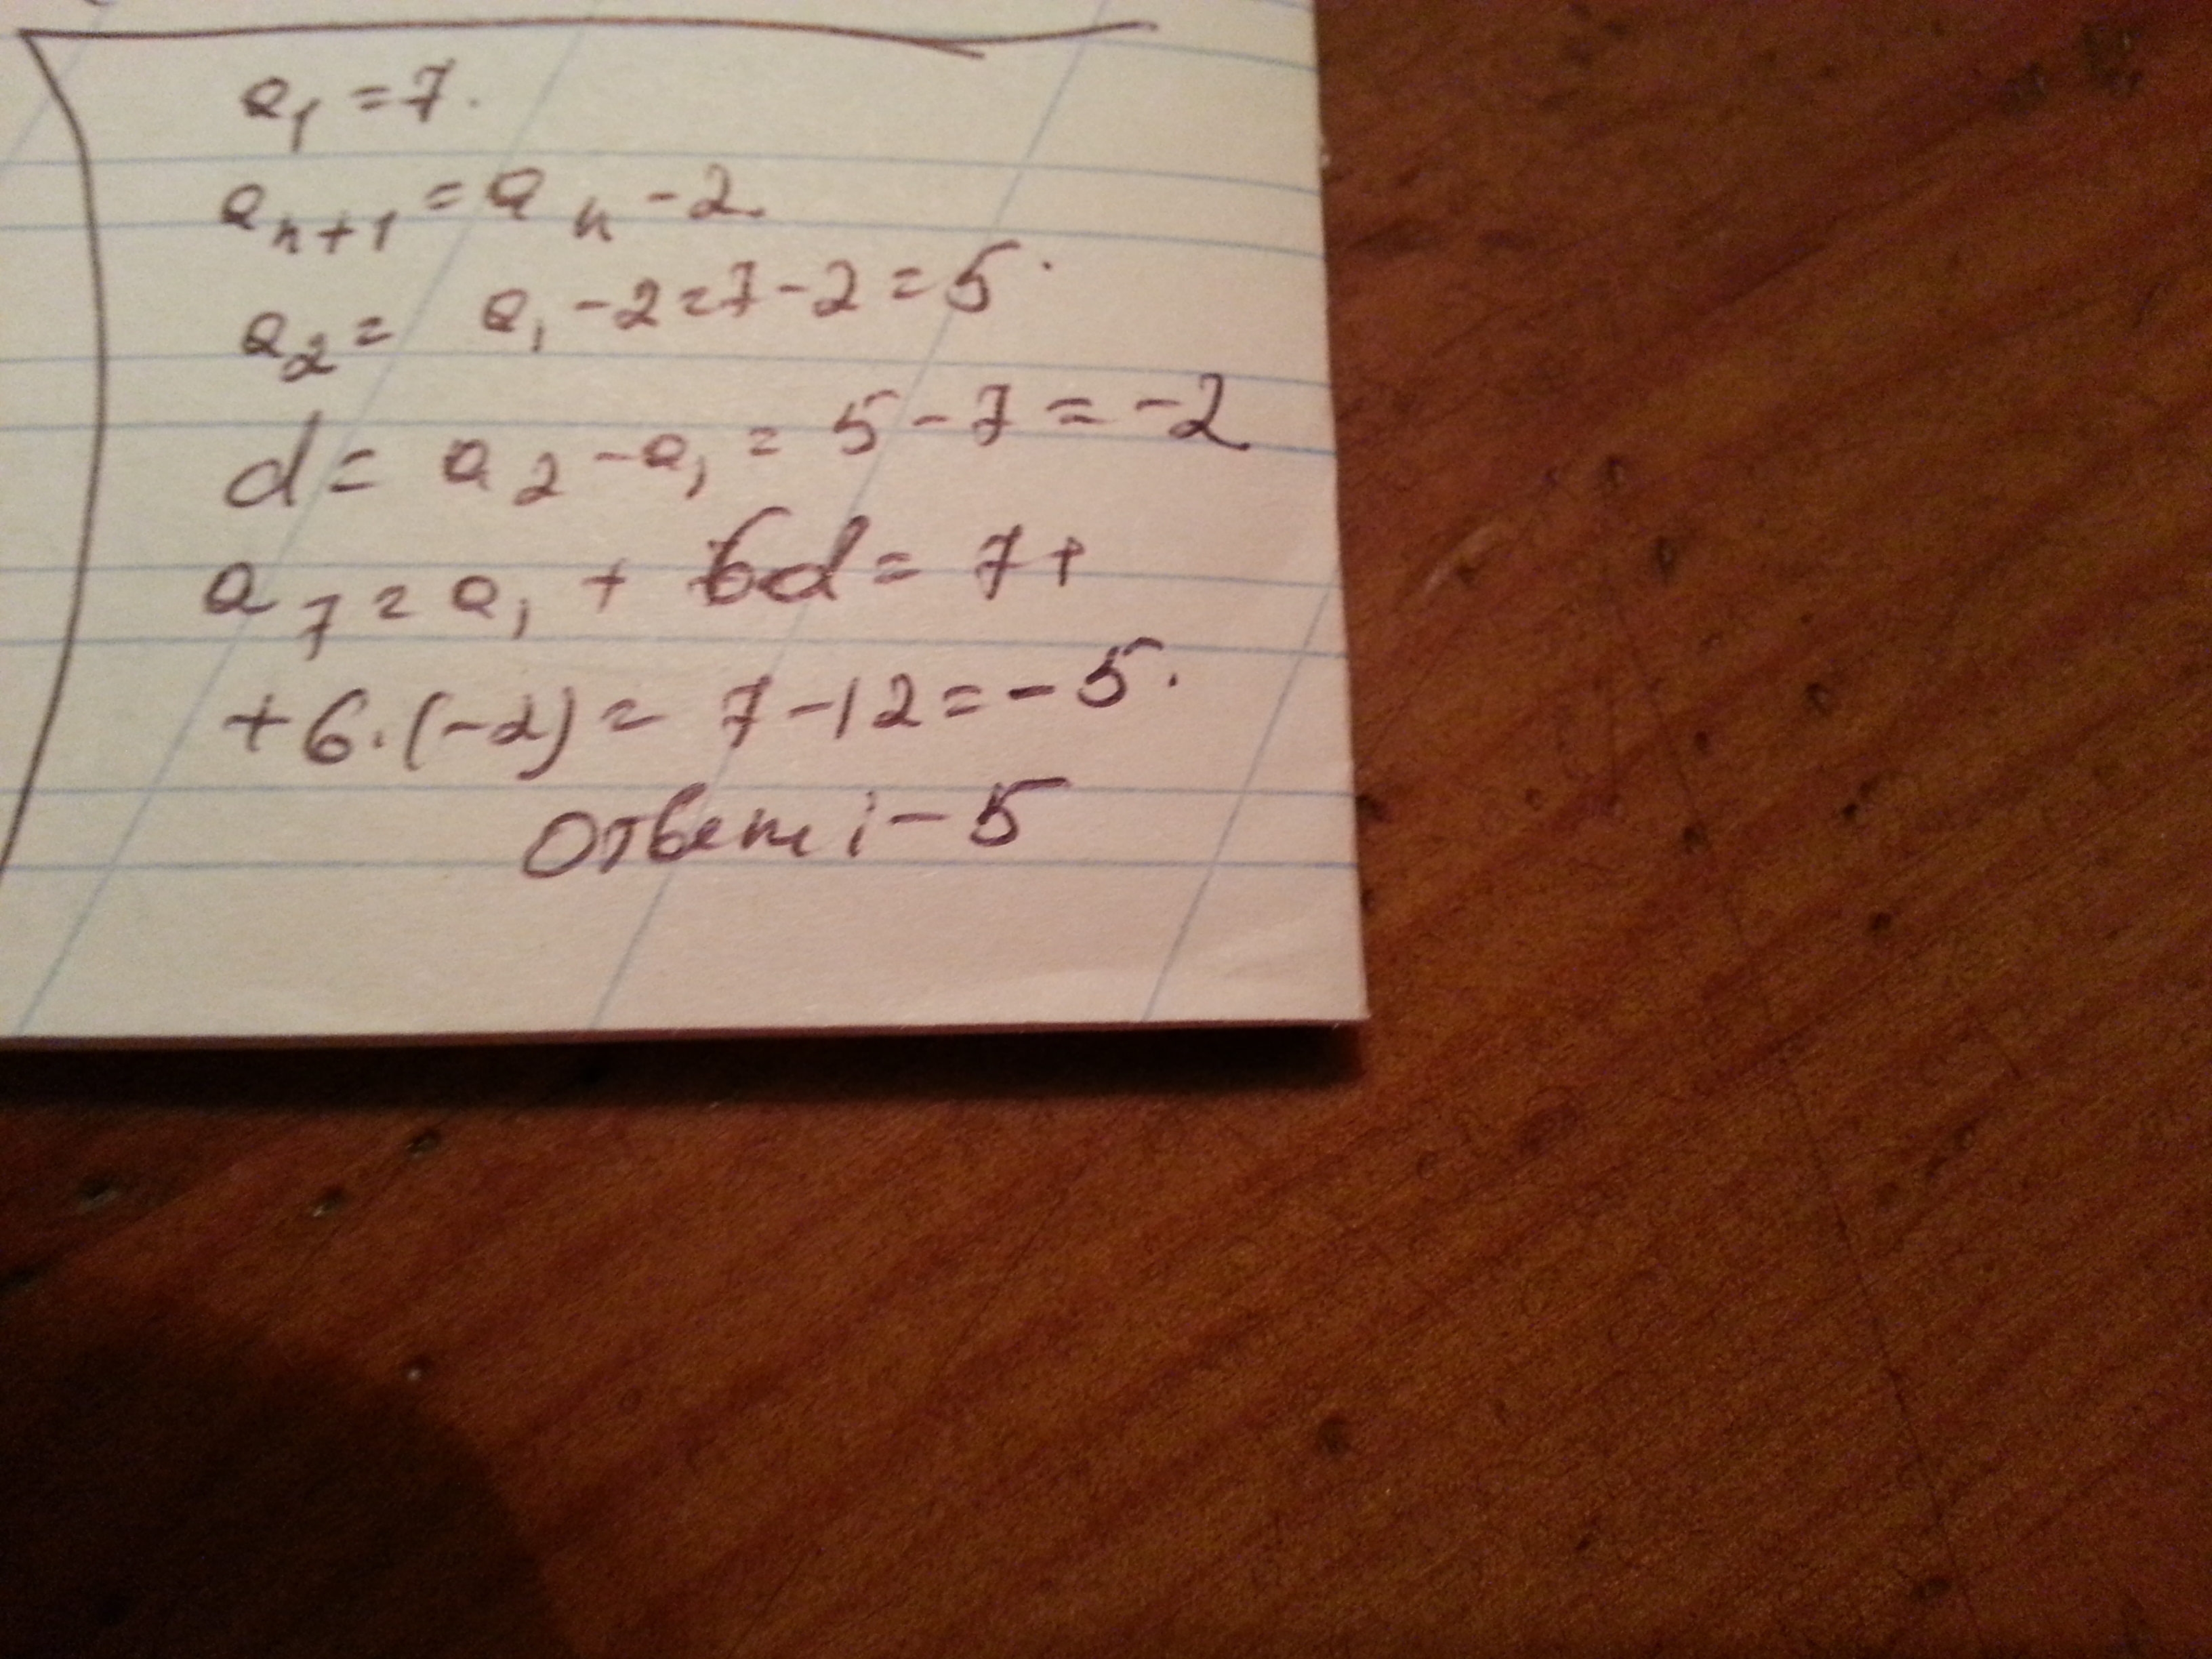 a₁ = 7.
aₙ₊₁ = aₙ - 2
a₂ = a₁ - 2 = 7 - 2 = 5.
d = a₂ - a₁ = 5 - 7 = -2
a₇ = a₁ + 6d = 7 +
+ 6 · (-2) = 7 - 12 = -5.
Ответ: -5